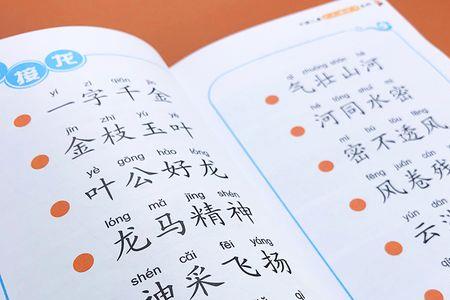 接龙
yí zì qiān jīn
一字千金
jīn zhī yù yè
金枝玉叶
yè gōng hào lóng
叶公好龙
lóng mǎ jīng shén
龙马精神
shén cǎi fēi yáng
神采飞扬
qì zhuàng shān hé
气壮山河
河同水密
mì bú tòu fēng
密不透风
fēng juǎn cán
风卷残
yún dàn
云